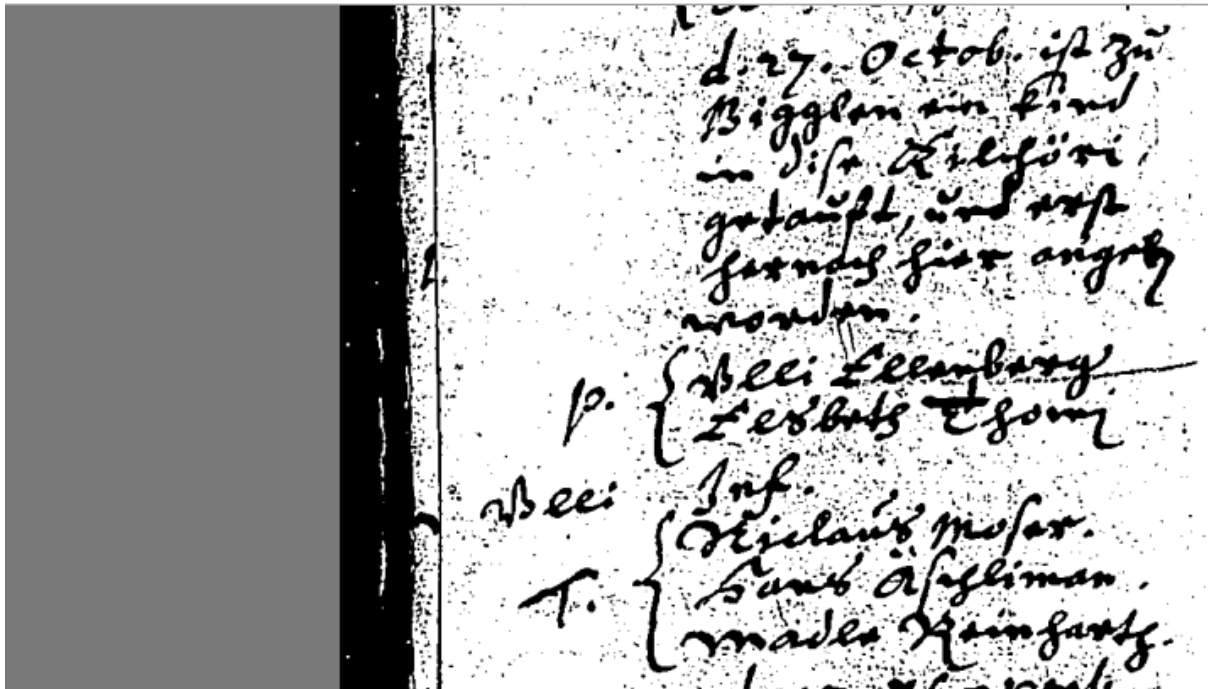 d. 27. Octob. ist zu
Bigglen ein kind
in dise Kilchöri
getauft, und erst
hernach hier angeb
worden.
p. { Ulli Ellenberg
Elsbeth Thomi
Ulli Inf.
T. { Niclaus Moser.
Hans Äschliman.
Madle Reinharth.